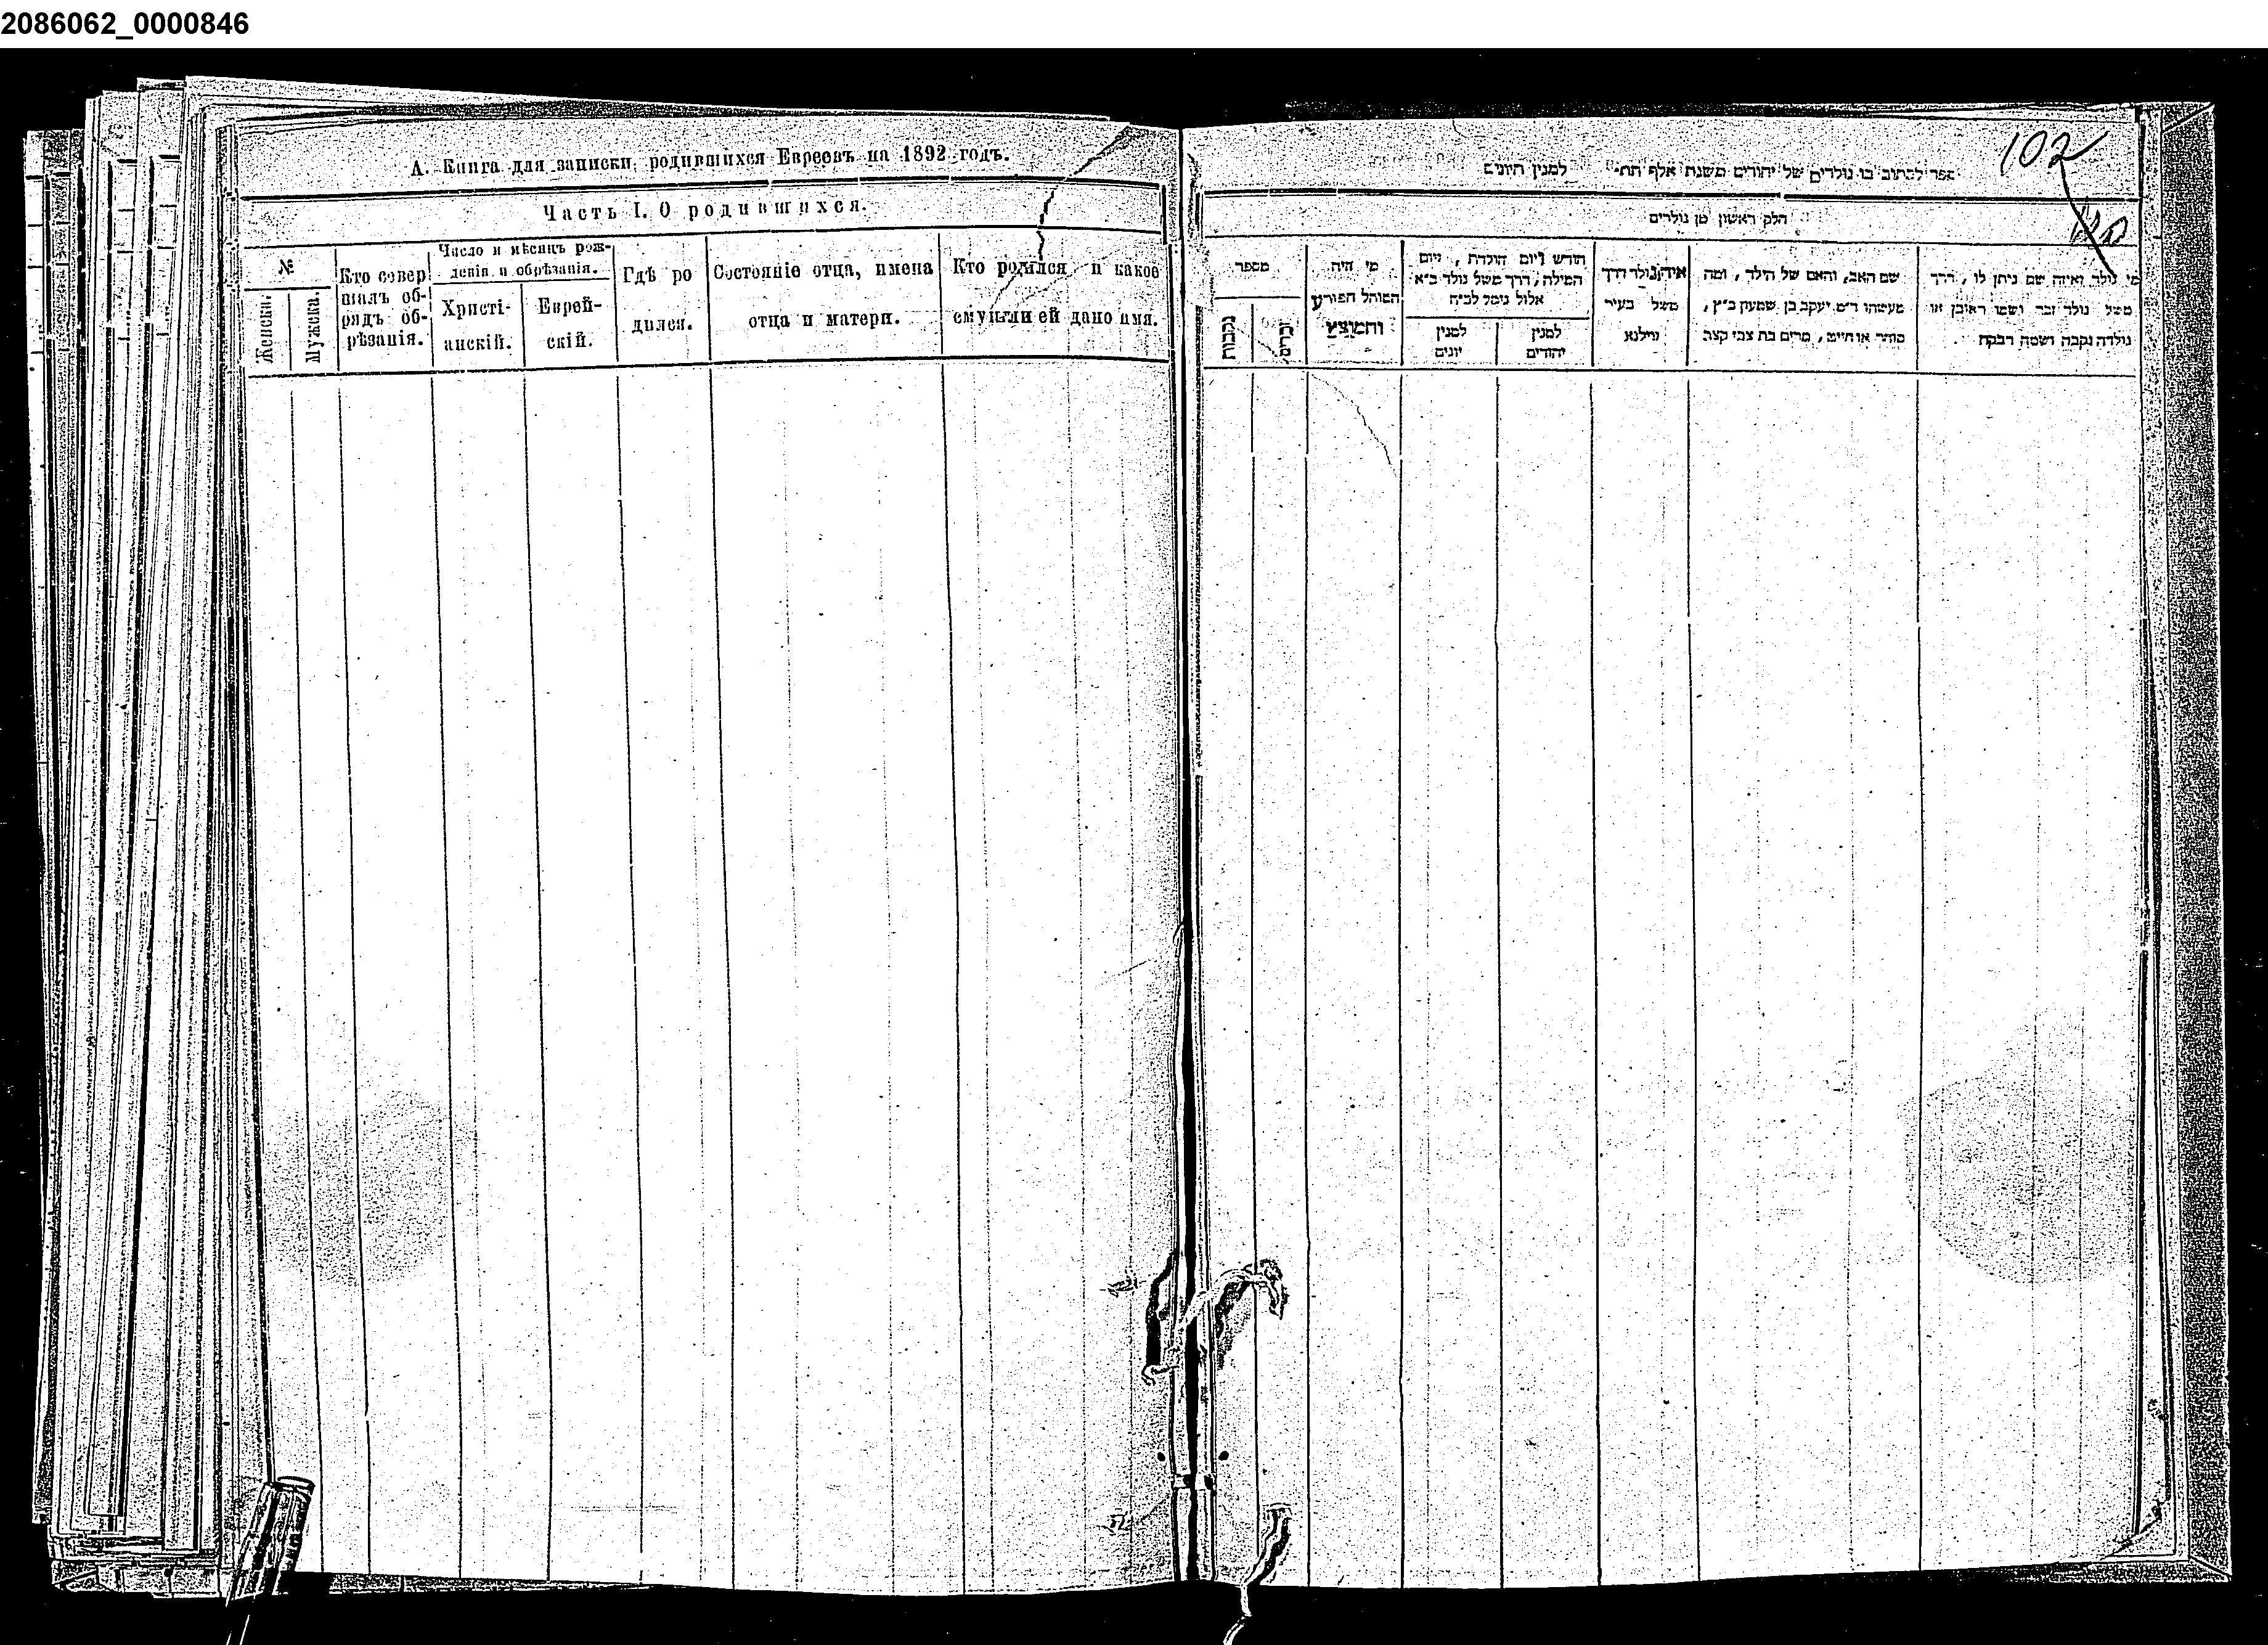 2086062_0000846
А. Книга для записки родившихся Евреевъ на 1892 годъ.
Часть I. О родившихся.
№
Женски.
Мужска.
Кто совер
шалъ об-
рядъ об-
рѣзанія.
Число и мѣсяцъ рож-
денія и обрѣзанія.
Христі-
анскій.
Еврей-
скій.
Гдѣ ро
дился.
Состояніе отца, имена
отца и матери.
Кто родился и какое
ему или ей дано имя.
102
ספר לכתוב בו נולדים של יהודים משנת אלף תת״ למנין היונים
חלק ראשון מן נולדים
מספר
נקבות
זכרים
מי היה
המוהל הפורע
והמוצץ
חודש ויום הולדת, ויום
המילה, דרך משל נולד ב״א
אלול נימל לב״ה
למנין
יונים
למנין
יהודים
איה נולד דרך
משל בעיר
ווילנא
שם האב, והאם של הילד, ומה
מעשהו ד״מ יעקב בן שמעון כ״ץ,
סוחר או חייט, מרים בת צבי קצב
מי נולד ואיזה שם ניתן לו, דרך
משל נולד זכר ושמו ראובן או
נולדה נקבה ושמה רבקה